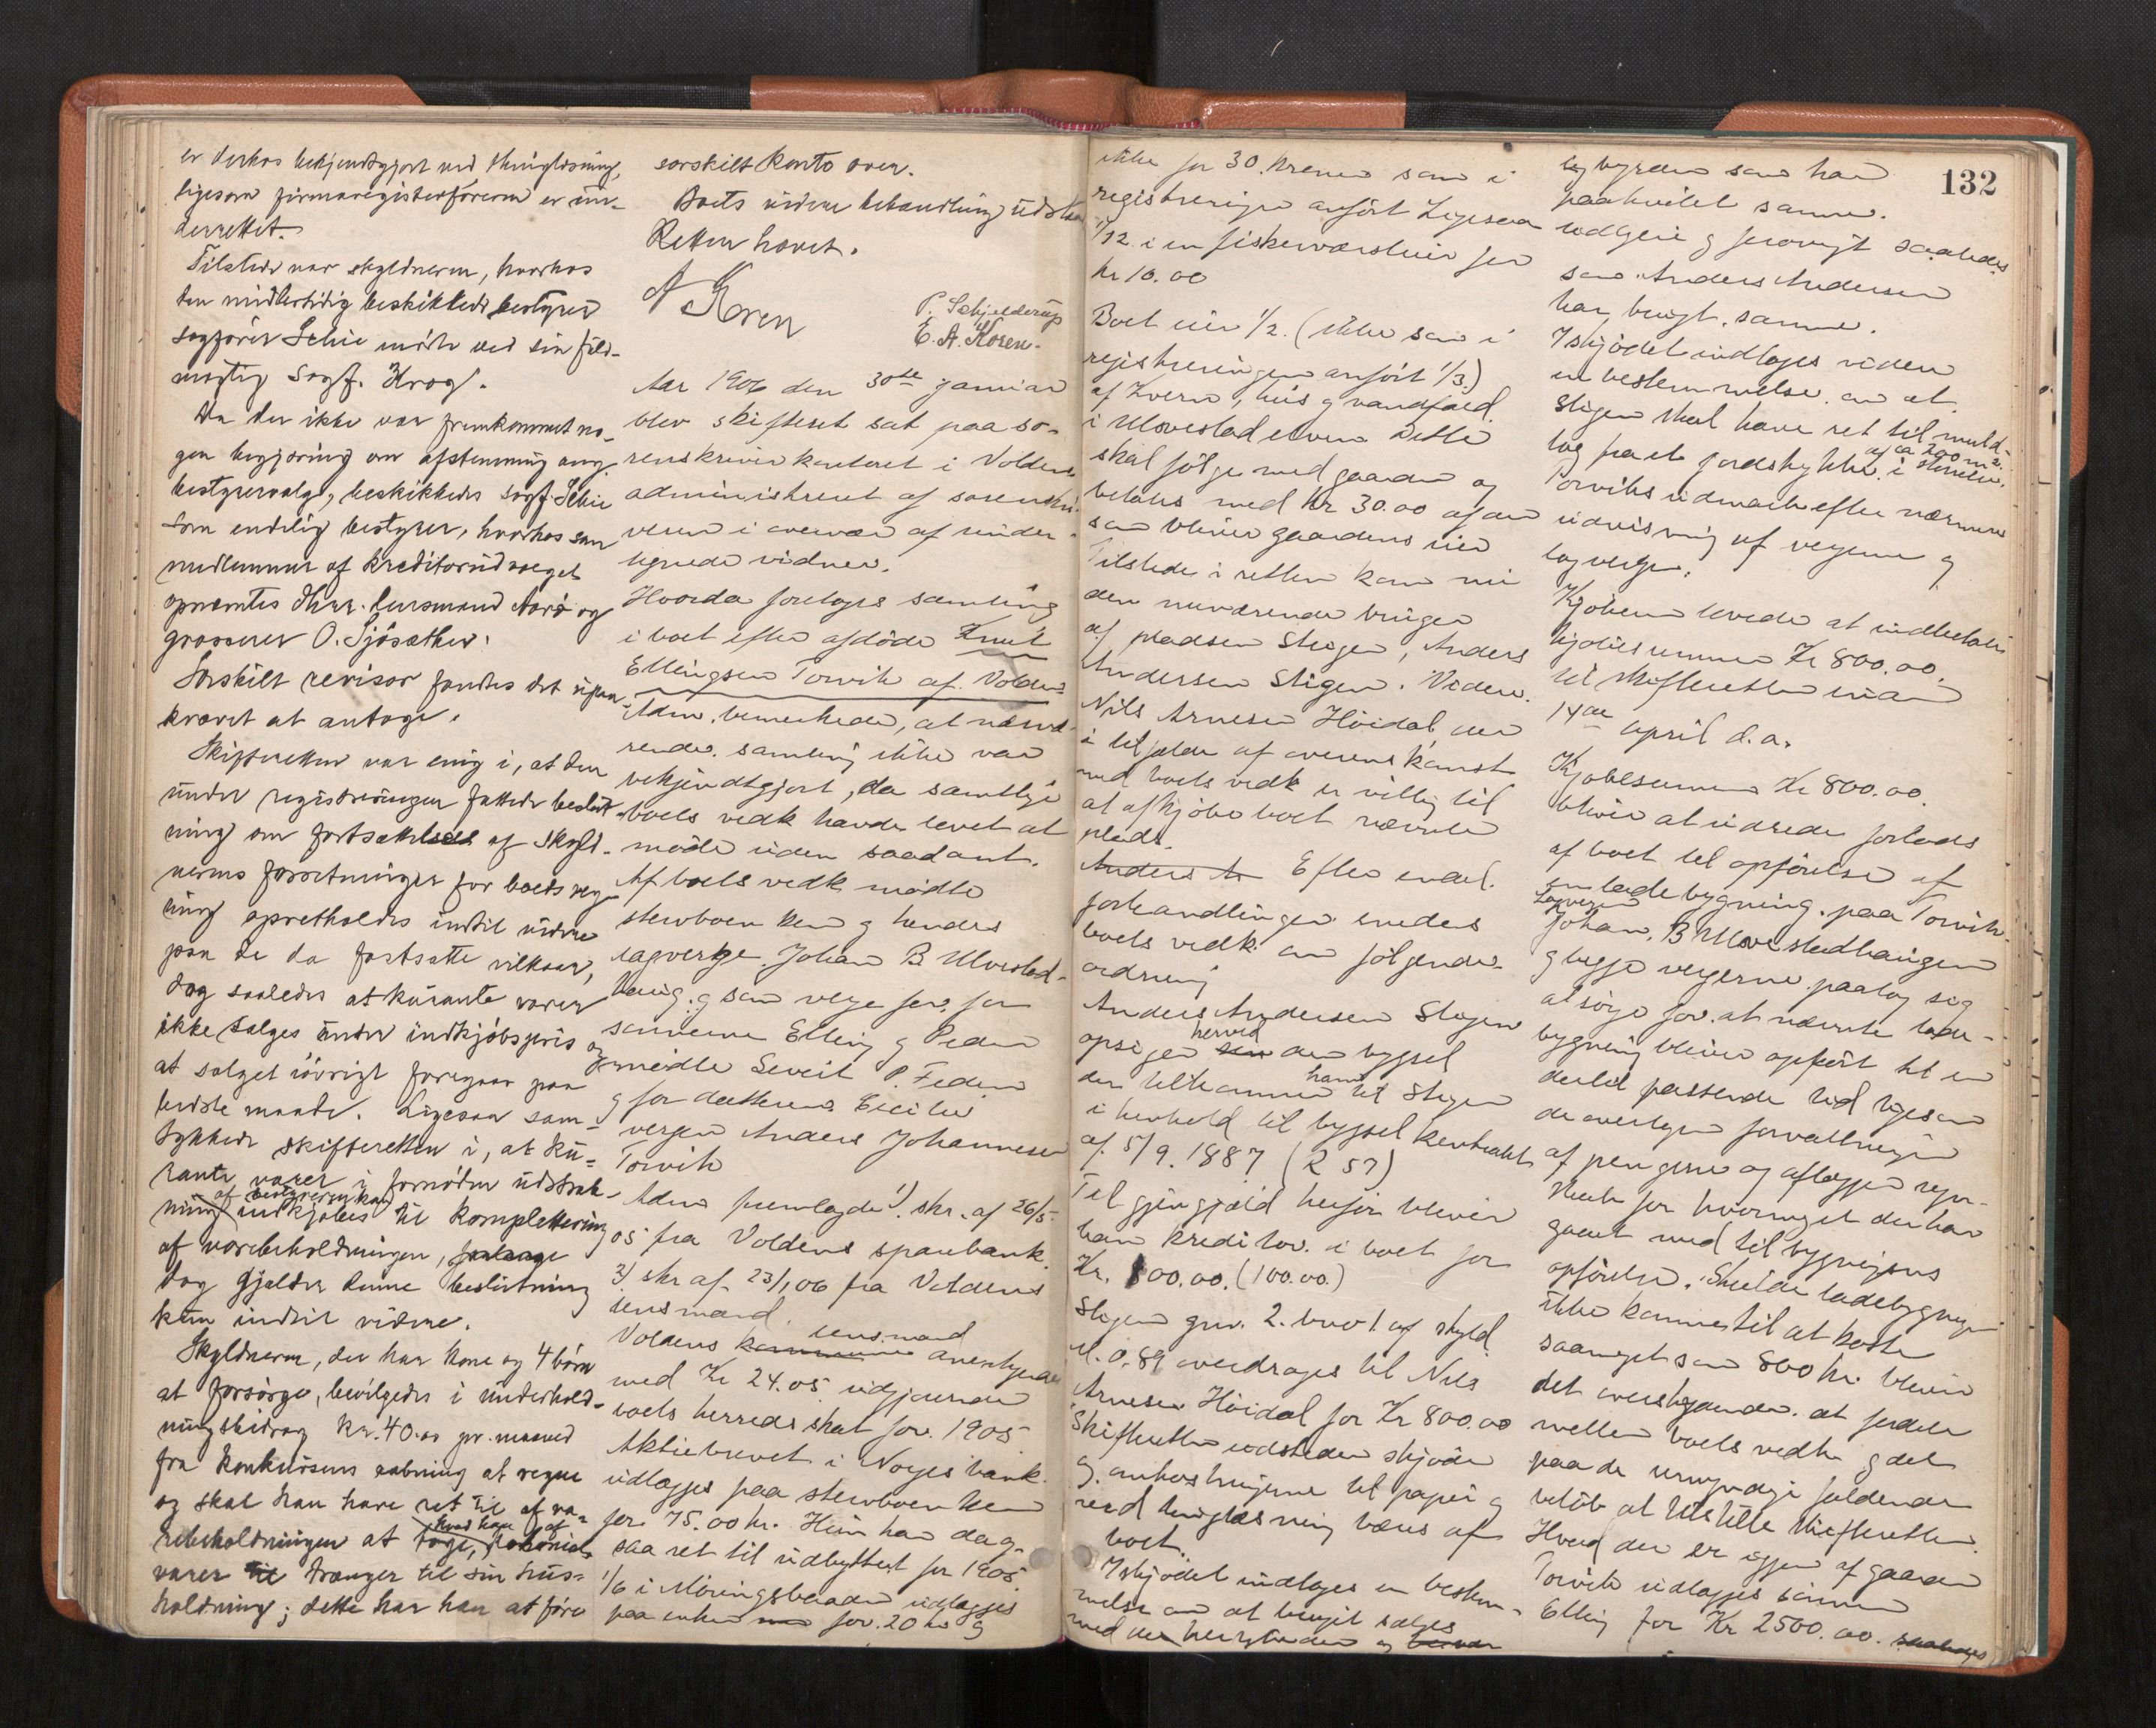 er derhos bekjendtgjort ved thinglæsning,
ligesom firmaregisterføreren er un-
derrettet.
Tilstede var skyldneren, hvorhos
den midlertidig beskikkede bestyrer
sagfører Schie mødte ved sin fuld-
mægtig sagf. Krog.
Da der ikke var fremkommet no-
gen begjæring om afstemning ang.
bestyrervalg, beskikkedes sagf. Schie
som endelig bestyrer, hvorhos som
medlemmer af kreditorudvalget
opnævntes Hrr. lensmand Aarø og
grosserer O. Sjøsæther.
Særskilt revisor fandtes det upaa-
krævet at antage.
Skifteretten var enig i, at den
under registreringen fattede beslut-
ning om fortsættelse af skyld-
nerens forretninger for boets reg-
ning opretholdes indtil videre
paa de da fastsatte vilkaar,
dog saaledes at kurante varer
ikke sælges under indkjøbspris og
at salget iøvrigt foregaar paa
bedste maade. Ligesaa sam-
tykkede skifteretten i, at ku-
rante varer i fornøden udstræk-
ning af bestyreren kan indkjøbes til komplettering
af varebeholdningen,
dog gjælder denne beslutning
kun indtil videre.
Skyldneren, der har kone og 4 børn
at forsørge, bevilgedes i underhold-
ningsbidrag kr. 40.00 pr. maaned
fra konkursens aabning at regne
og skal han have ret til af va-
rebeholdningen at tage, hvad han af kolonial
varer trænger til sin hus-
holdning; dette har han at føre
særskilt konto over.
Boets videre behandling udstaar
Retten hævet.
A Koren
P. Schjelderup
E. A. Koren.
Aar 1906 den 30te januar
blev skifteret sat paa so-
renskriverkontoret i Volden
administreret af sorenskri-
veren i overvær af under-
tegnede vidner.
Hvorda foretoges samling
i boet efter afdøde Knut
Ellingsen Torvik af Volden
Adm. bemerkede, at nærvæ-
rende samling ikke var
bekjendtgjort, da samtlige
boets vedk havde lovet at
møde uden saadant.
Af boets vedk mødte
stervboenken g hendes
lagverge Johan B. Ulvestad-
haug. g som verge for for
sønnerne Elling g Peder
mødte Sevrit P. Fedin
g for datteren Cecilie
vergen Anders Johannesen
Torvik
Adm fremlagde 1) skr. af 26/5.
05 fra Voldens sparebank.
2) skr af 23/1 06 fra Voldens
lensmand.
Voldens kommune lensmand
med Kr 24.05 udgjørende
boets herredsskat for 1905.
Aktiebrevet i Norges bank
udlægges paa stervboenken
for 75.00 kr. Hun har dog
saa ret til udbyttet for 1905.
1/6 i udlægges
paa enken for 20 kr g
132
ikke for 30 kroner som i
registreringen anført Ligesaa
1/12 i en for
kr 10.00
Boet eier 1/2. (ikke som i
registreringen anført 1/3.)
af Kvern, hus g vandfald
i Ulvestadelven Dette
skal følge med gaarden og
betales med Kr 30.00 af den
som bliver gaardens eier
Tilstede i retten kom nu
den nuværende bruger
af pladsen Stigen, Anders
Andersen Stigen. Videre
Nils Arnesen Høidal, der
i tilfælde af overenskomst
med boets vedk er villig til
at afkjøbe boet nævnte
plads.
Anders A Efter endel
forhandlinger enedes
boets vedk om følgende
ordning
Anders Andersen Stigen
opsiger herved den bygsel
der tilkommer ham til Stigen
i henhold til bygselkontrakt
af 5/9. 1887 (R 57)
Til gjengjæld herfor bliver
han kreditor i boet for
Kr. 100.00. (100.00.)
Stigen gnr. 2. bno 1 af skyld
M. 0,89 overdrages til Nils
Arnesen Høidal for Kr 800.00
Skifteretten udsteder skjøde
g. omkostningerne til papir g
ved thinglæsning bæres af
boet.
I skjødet indtages en bestem-
melse om at bruget sælges
med de herligheder og
og byrder som har
paahvilet samme.
udlgeie g forøvrigt saaledes
som Anders Andersen
har brugt samme.
I skjødet indtages videre
en bestemmelse om at
Stigen skal have ret til muld-
tag fra et jordstykke af ca 200 m2. i størrelse,
Torviks udmark efter nærmere
udvisning af vergerne g
lagvergen.
Kjøberen lovede at indbetale
kjøbesummen Kr 800.00.
til skifteretten inden
14de april d. a.
Kjøbesummen Kr 800.00.
bliver at udrede forlods
af boet til opførelse af
en ladebygning paa Torvik.
Lagvergen Johan. B Ulvestadhaugen
g begge vergerne paatog sig
at sørge for at nævnte lade-
bygning bliver opført til en
dertil passende tid ligesom
de overtager forvaltningen
af pengene og aflægger regn-
skab for hvormeget der har
gaaet med til bygningens
opførelse. Skulde ladebygningen
ikke komme til at koste
saameget som 800 kr. bliver
det overskydende at fordele
mellem boets vedk g det
paa de umyndige faldende
beløb at tilstille skifteretten.
Hvad der er igjen af gaarden
Torvik udlægges sønnen
Elling for Kr 2500.00. saaledes